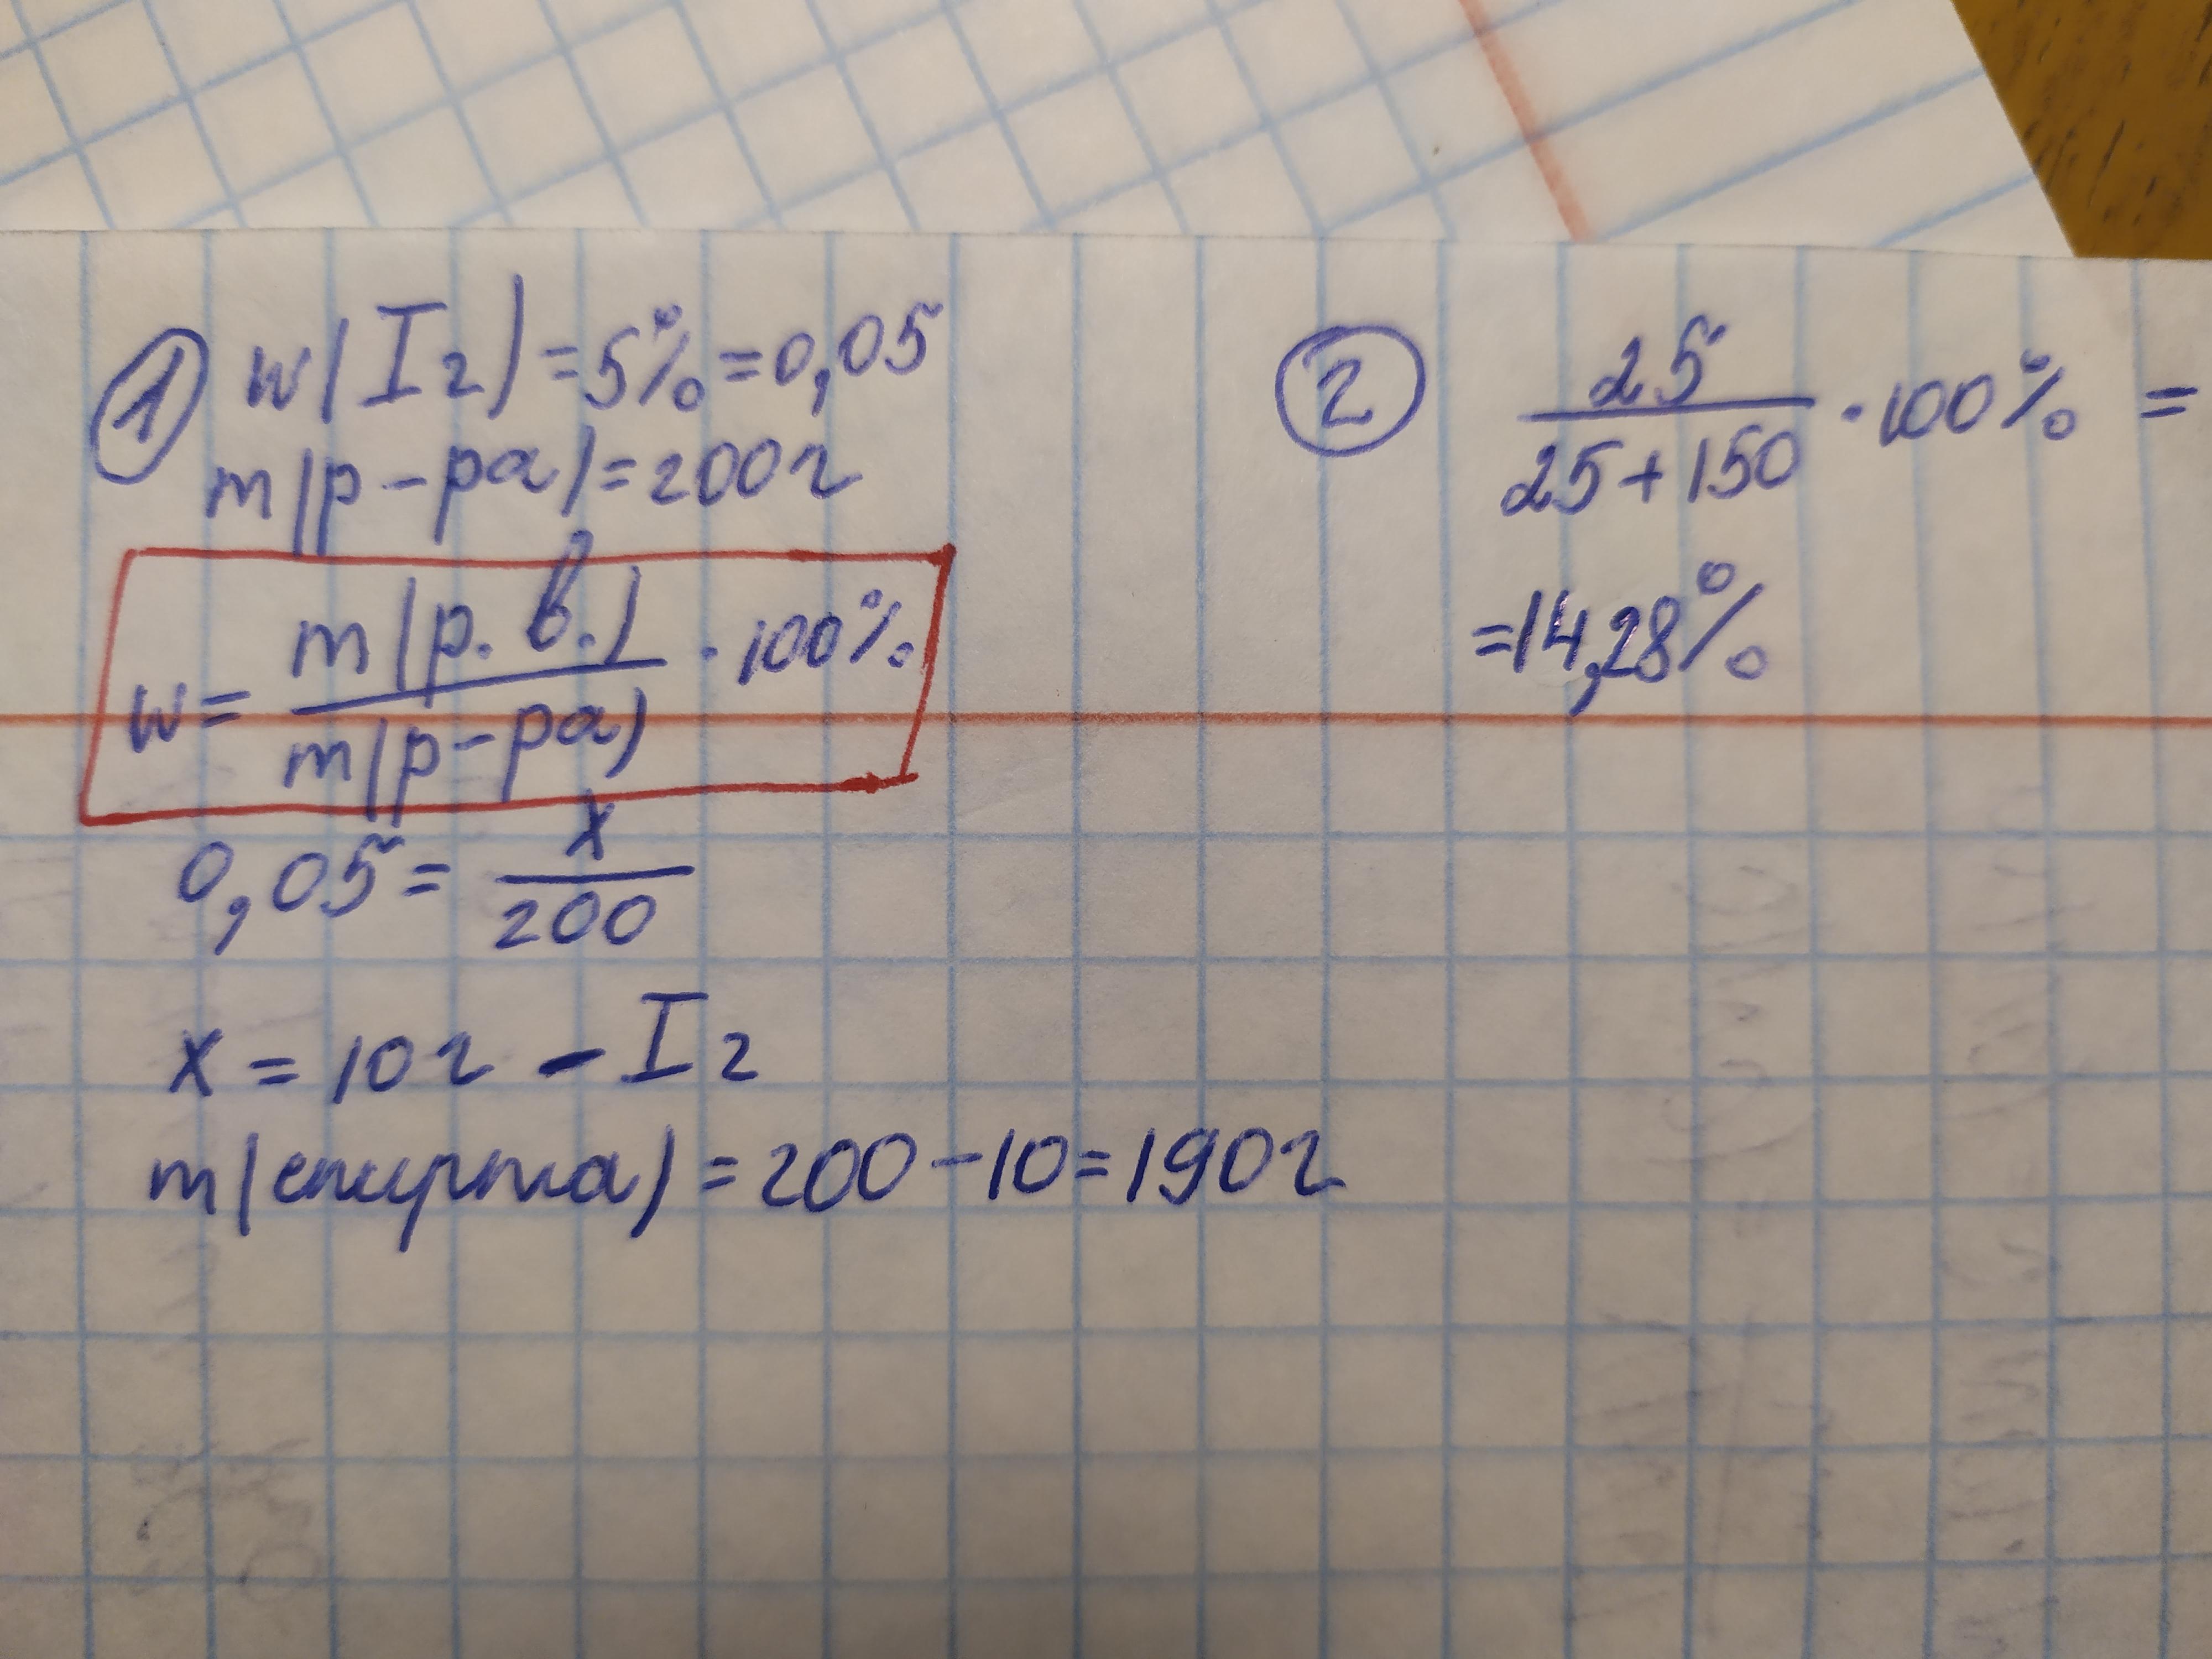 ① w(I₂) = 5% = 0,05
m(р-ра) = 200г
w = m(р.в.) / m(р-ра) · 100%
0,05 = x / 200
x = 10г - I₂
m(спирта) = 200 - 10 = 190г
② 25 / 25 + 150 · 100% =
= 14,28%